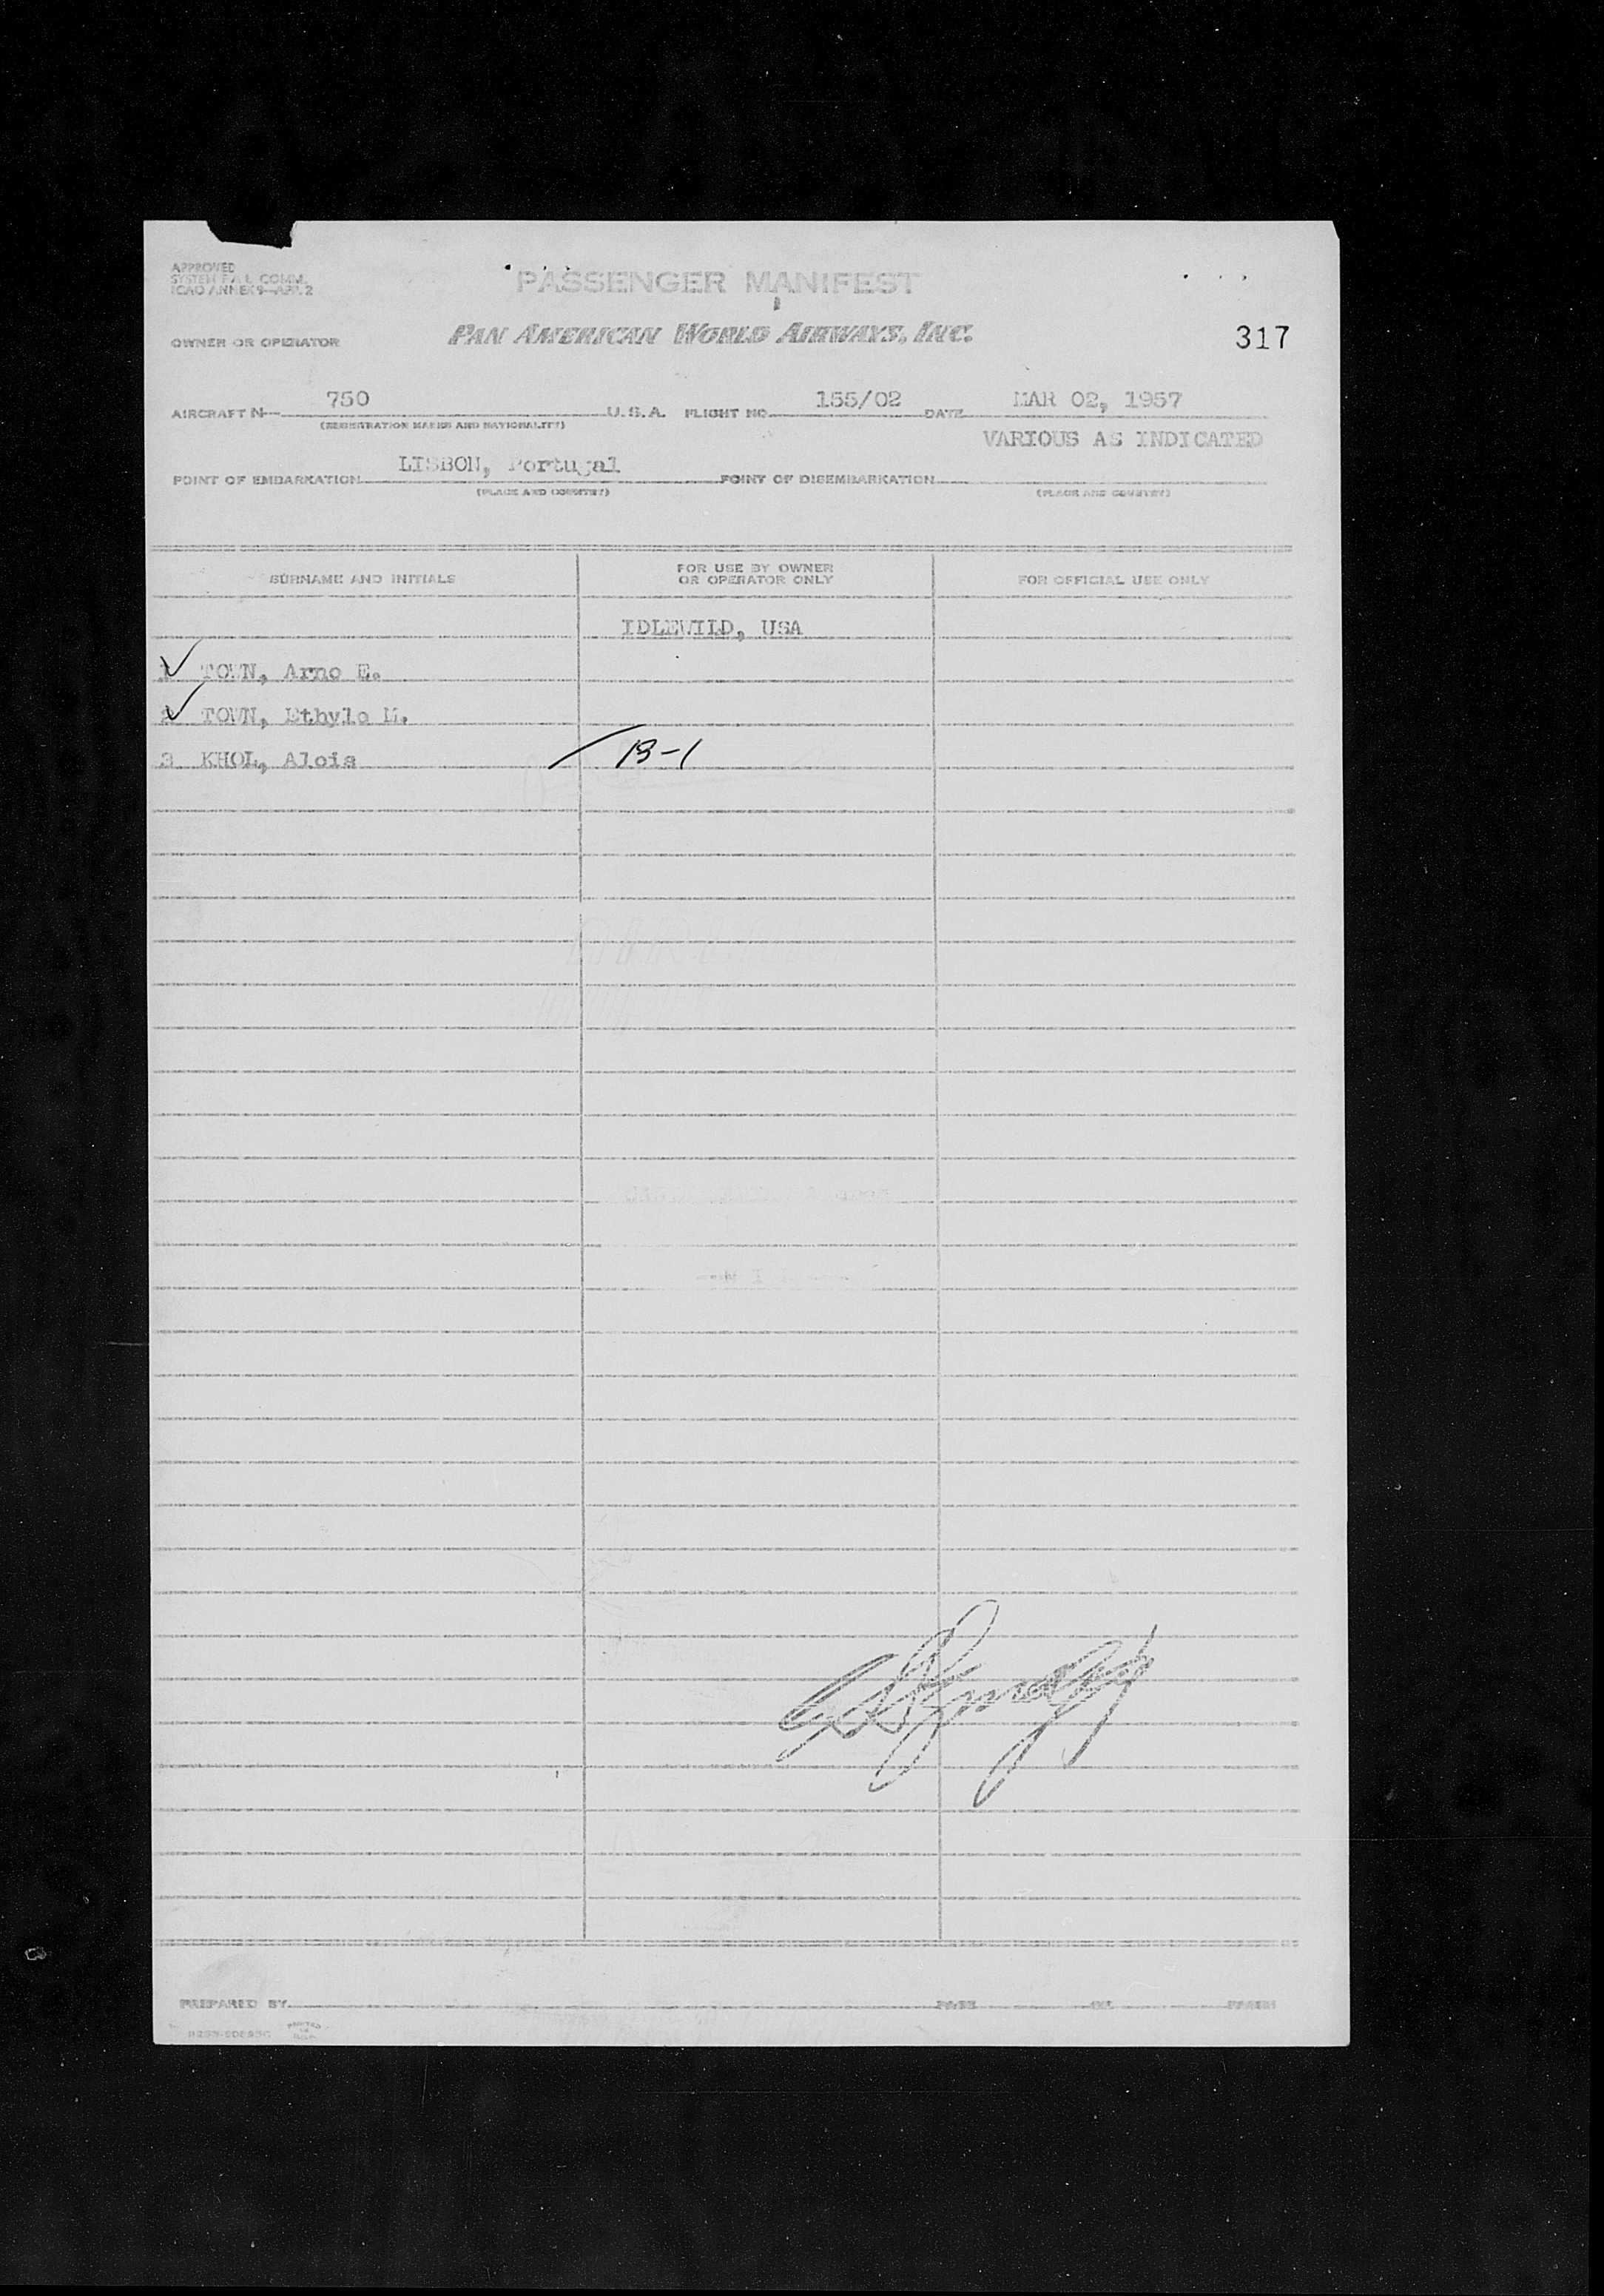 APPROVED
SYSTEM F.A.L. COMM.
ICAO ANNEX 9—APP. 2
PASSENGER MANIFEST
OWNER OR OPERATOR
PAN AMERICAN WORLD AIRWAYS, INC.
317
AIRCRAFT N— 750 U.S.A. FLIGHT NO. 155/02 DATE MAR 02, 1957
(REGISTRATION MARKS AND NATIONALITY)
VARIOUS AS INDICATED
POINT OF EMBARKATION LISBON, Portugal POINT OF DISEMBARKATION
(PLACE AND COUNTRY) (PLACE AND COUNTRY)
SURNAME AND INITIALS
FOR USE BY OWNER
OR OPERATOR ONLY
FOR OFFICIAL USE ONLY
IDLEWILD, USA
1 TOWN, Arno E.
2 TOWN, Ethyle M.
3 KHOL, Alois B-1
PREPARED BY PAGE OF PAGES
PRINTED
IN
U.S.A.